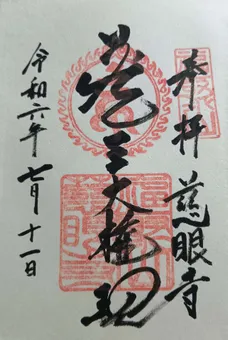 奉拝 慈眼寺
蔵王大権現
令和六年七月十一日